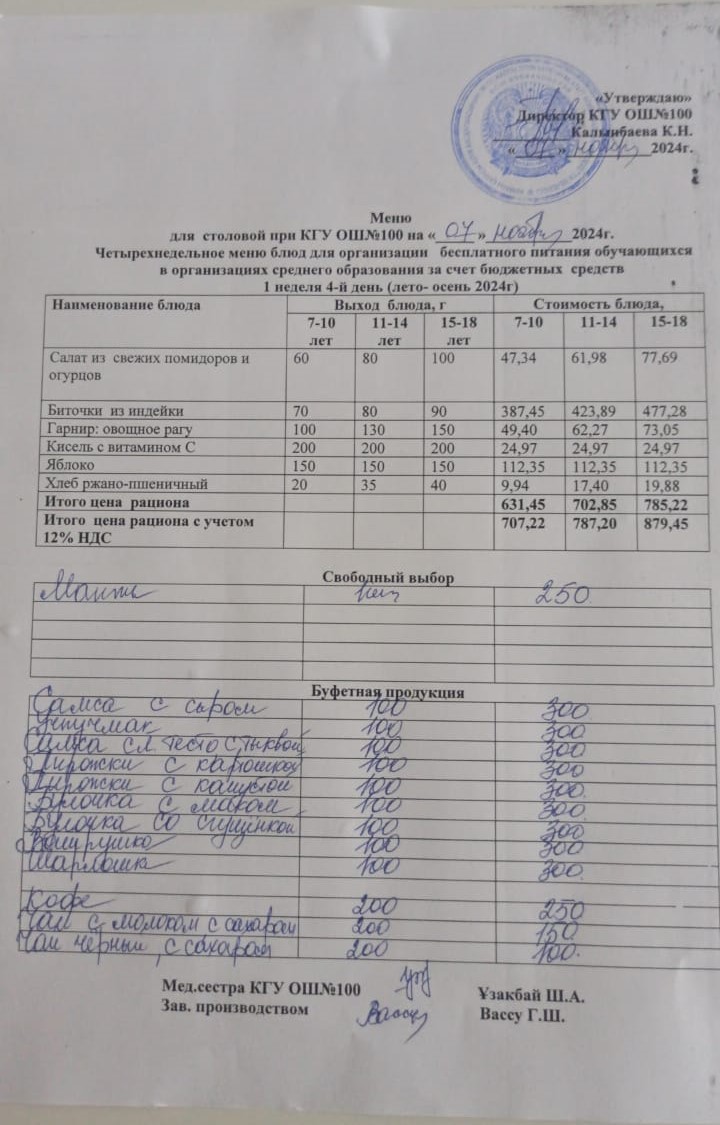 «Утверждаю»
Директор КГУ ОШ№100
Калынбаева К.Н.
« 07 » ноябрь 2024г.
Меню
для столовой при КГУ ОШ№100 на « 07 » ноябрь 2024г.
Четырехнедельное меню блюд для организации бесплатного питания обучающихся
в организациях среднего образования за счет бюджетных средств
1 неделя 4-й день (лето- осень 2024г)
Наименование блюда Выход блюда, г Стоимость блюда,
7-10 лет 11-14 лет 15-18 лет 7-10 11-14 15-18
Салат из свежих помидоров и огурцов 60 80 100 47,34 61,98 77,69
Биточки из индейки 70 80 90 387,45 423,89 477,28
Гарнир: овощное рагу 100 130 150 49,40 62,27 73,05
Кисель с витамином С 200 200 200 24,97 24,97 24,97
Яблоко 150 150 150 112,35 112,35 112,35
Хлеб ржано-пшеничный 20 35 40 9,94 17,40 19,88
Итого цена рациона 631,45 702,85 785,22
Итого цена рациона с учетом 12% НДС 707,22 787,20 879,45
Свободный выбор
Манты 250
Буфетная продукция
Самса с сыром 100 300
Учпучмак 100 300
Самса сл. тесто с тыквой 100 300
Пирожки с картошкой 100 300
Пирожки с капустой 100 300
Булочка с маком 100 300
Булочка со сгущенкой 100 300
Ватрушка 100 300
Шарлотка 100 300
Кофе 200 250
Чай с молоком с сахаром 200 150
Чай черный, с сахаром 200 100
Мед.сестра КГУ ОШ№100 Ұзакбай Ш.А.
Зав. производством Вассу Г.Ш.